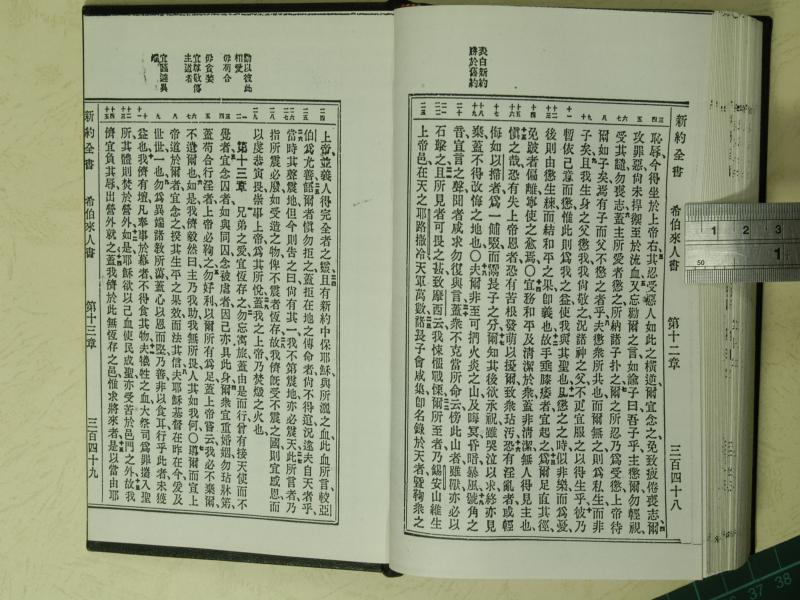 炎自新約
勝於舊約
新約全書
希伯來人書
第十二章
三百四十八
恥辱今得坐於上帝右其忍受惡人如此之橫逆爾宜念之免致疲倦喪志爾
攻罪惡尙未捍禦至於流血又忘勸爾之言如諭子曰吾子乎主懲爾勿輕視
受其譴勿喪志蓋主所愛者懲之所納諸子扑之爾之所忍乃爲受懲上帝待
爾如子矣焉有子而父不懲之者乎夫懲衆所共也而爾無之則爲私生而非
子矣且我生身之父懲我我尙敬之況諸神之父不更宜服之以得生乎彼乃
暫依己意而懲惟此則爲我之益使我與其聖也凡懲之之時似非樂而爲憂
後則由懲生練而結和平之果卽義也故手垂膝痿者宜起之爲爾足直其徑
免跛者偏離寧使之愈焉○宜務和平及淸潔於衆蓋非淸潔無人得見主也
愼之哉恐有失上帝恩者恐有苦根發萌以擾爾致衆玷污恐有淫亂者或輕
侮如以掃者爲一餔而鬻長子之分爾知其後欲承祝雖哭泣以求終亦見
棄蓋不得改悔之地也○夫爾非至可捫火炎之山及晦冥昏暗暴風號角之
音宣言之聲聞者咸求勿復與言蓋衆不克當所命云傍此山者雖獸亦必以
石擊之且所見者可畏之甚致摩西云我悚懼戰慄爾所至者乃錫安山維生
上帝邑在天之耶路撒冷天軍萬數諸長子會咸集卽名錄於天者曁鞫衆之
勸以彼此
相愛
毋苟合
毋貪婪
宜尊敬傳
主道者
宜避異
端
上帝並義人得完全者之靈且有新約中保耶穌與所灑之血此血所言較亞
伯爲尤善語爾者愼勿拒之蓋拒在地之傳命者尙不得逭況違夫自天者乎
當時其聲震地但今則吿之曰尙有其一我不第震地亦必震天此所言者乃
指所震必廢如受造之物俾不震者恆存故我儕旣受不震之國則宜感恩而
以虔恭寅畏崇事上帝爲其所悅蓋我之上帝乃焚燬之火也
第十三章 兄弟之愛宜恆存之勿忘寓旅蓋由是而行曾有接天使而不
覺者宜念囚者如與同囚念被虐者因己亦具此身爾衆宜重婚姻勿玷牀笫
蓋苟合行淫者上帝必鞫之勿好利以爾所有爲足蓋上帝嘗云我必不棄爾
不遺爾也如是我儕毅然曰主乃我助我無所畏人其如我何○導爾而宣上
帝道於爾者宜念之揆其生平之果效而法其信夫耶穌基督在昨在今爰及
世世一也勿爲異端諸敎所蕩蓋心以恩而堅乃善非以食耳行乎此者未獲
益也我儕有壇凡奉事於幕者不得食其物夫犧牲之血大祭司爲罪攜入聖
所其體則焚於營外如是耶穌欲以己血使民成聖亦受苦於邑門之外故我
儕宜負其辱出營外就之蓋我儕於此無恆存之邑惟求將來者是以當由耶
新約全書
希伯來人書
第十三章
三百四十九
1 2 3
50
36 37 38